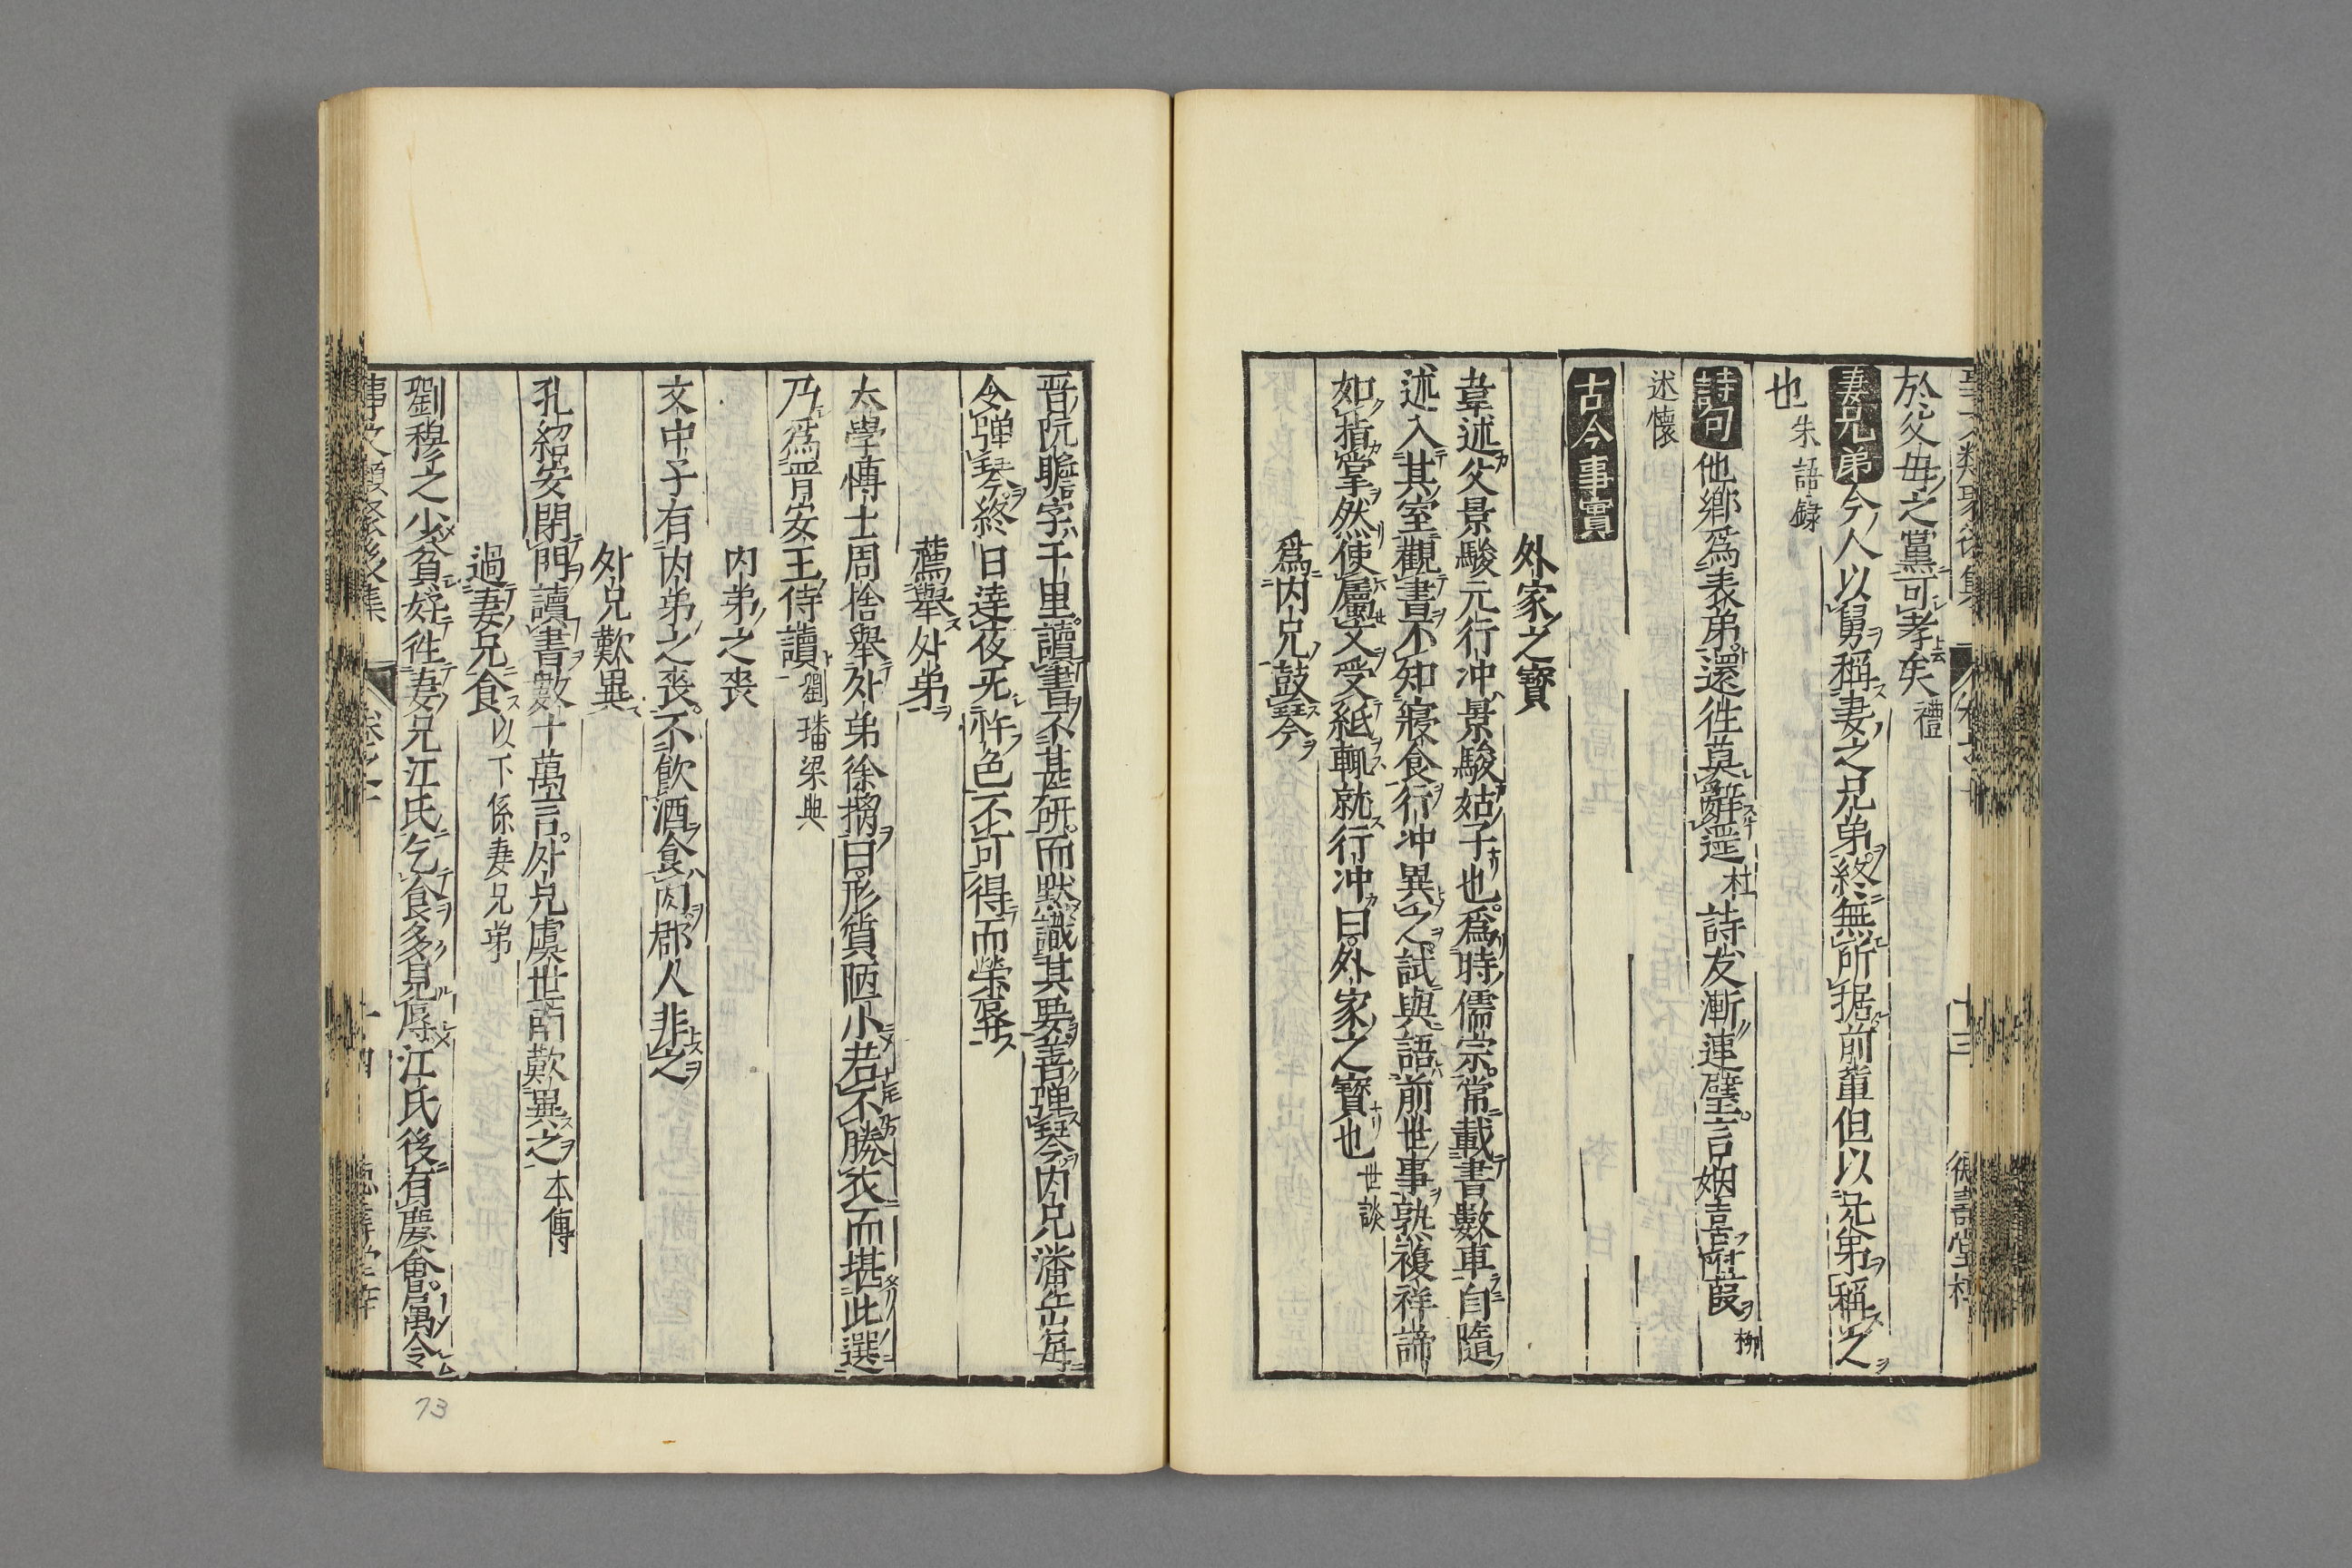 於父母之黨可孝矣禮
妻兄弟今人以舅稱妻之兄弟終無所据前軰但以兄弟稱之
也朱語録
詩句他鄉爲表弟還徃莫辭遥杜詩友漸連璧言姻喜附葭柳
述懷
古今事實
外家之寶
韋述父景駿元行冲景駿姑子也爲時儒宗常載書數車自隨
述入其室觀書不知寢食行冲異之試與語前世事孰複祥諦
如指掌然使屬文受紙輒就行冲曰外家之寶也世談
爲内兄鼓琴
晋阮瞻字千里讀書不甚研而默識其要善弾琴内兄潘岳每
令弾琴終日達夜无忤色不可得而榮辱
薦舉外弟
太學博士周捨舉外弟徐摛曰形質陋小若不勝衣而堪此選
乃爲晋安王侍讀劉璠梁典
内弟之喪
文中子有内弟之喪不飲酒食肉郡人非之
外兄歎異
孔紹安閉門讀書數十萬言外兄虞世南歎異之本傳
過妻兄食以下係妻兄弟
劉穆之少貧好徃妻兄江氏乞食多見辱江氏後有慶會属令
事文類聚後集 卷之十 十四
73